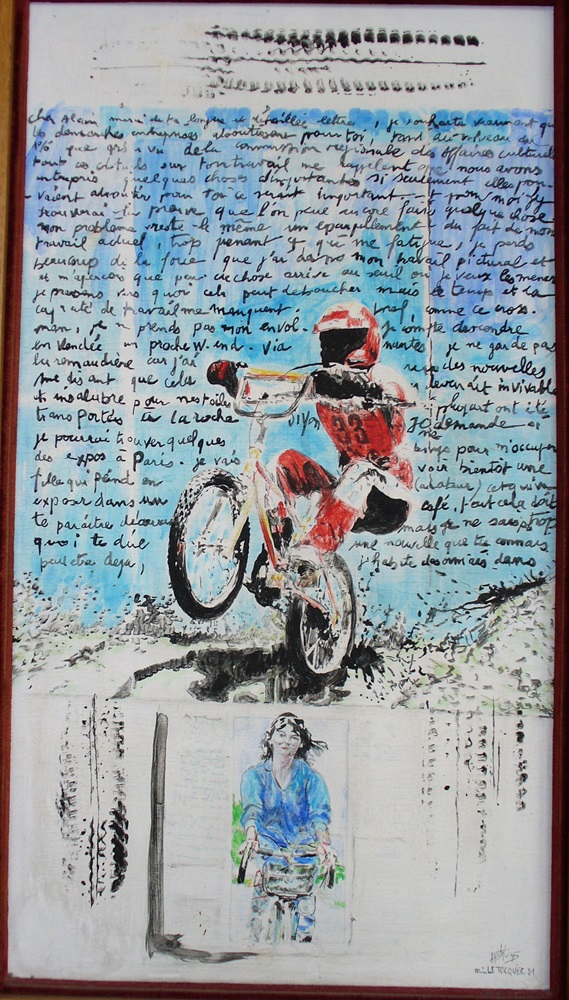 cher Alain merci de ta longue et détaillée lettre, je souhaite vraiment que
les démarches entreprises aboutissent pour toi, tant au niveau du
1% que vis à vis de la commission régionale des affaires culturelles
tout ces détails sur ton travail me rappellent que nous avons
entrepris quelques choses d'importantes si seulement elles pou-
vaient aboutir pour toi ce serait important et pour moi j'y
trouverai la preuve que l'on peut encore faire quelque chose
mon problème reste le même un éparpillement du fait de mon
travail actuel, trop prenant et qui me fatigue, je perds
beaucoup de la force que j'ai dans mon travail pictural et
et m'aperçois que peu de chose arrive au seuil où je veux les mener
je pressens vers quoi cela peut déboucher mais le temps et la
capacité de travail me manquent, bref, comme ce cross-
man, je ne prends pas mon envol. je compte descendre
en Vendée un proche W.end. Via Nantes, je ne garde pas
la remaudière car j'ai des nouvelles
me disant que cela devenait invivable
et insalubre pour mes toiles qui ont été
transportées à La Roche je demande si
je pourrai trouver quelques temps pour m'occuper
des expos à Paris. je vais voir bientôt une
fille qui peind en (amateur) et qui va
exposer dans un café, tout cela doit
te paraître décousu mais je ne sais trop
quoi te dire une nouvelle que tu connais
peut être déjà, j'habite désormais dans
33
LE TOCQUER 81